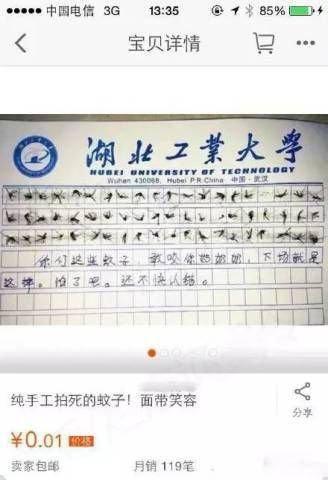 中国电信 3G 13:35 85%
宝贝详情
湖北工業大学
HUBEI UNIVERSITY OF TECHNOLOGY
Wuhan 430068, Hubei P.R.China 中国·武汉
你们这些蚊子，敢咬你奶奶，下场就是
这样。怕了吧。还不快认错。
纯手工拍死的蚊子！面带笑容
分享
¥0.01 价格
卖家包邮 月销 119笔